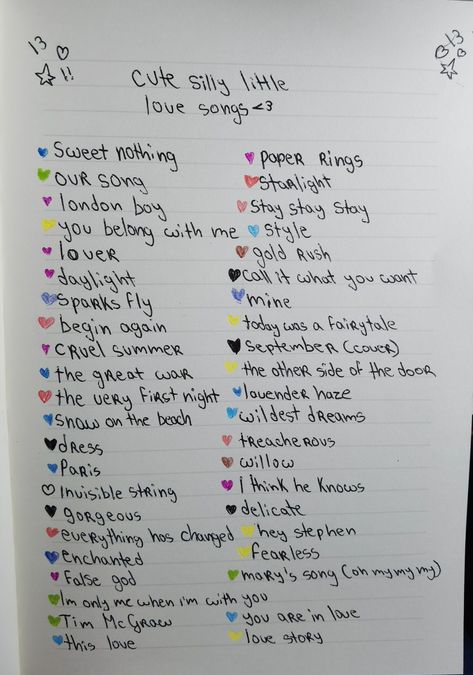 13
!!
13
cute silly little
love songs <3
sweet nothing
our song
london boy
you belong with me
lover
daylight
sparks fly
begin again
cruel summer
the great war
the very first night
snow on the beach
dress
Paris
Invisible string
gorgeous
everything has changed
enchanted
False god
I'm only me when i'm with you
Tim McGraw
this love
paper rings
starlight
stay stay stay
style
gold rush
call it what you want
mine
today was a fairytale
september (cover)
the other side of the door
lavender haze
wildest dreams
treacherous
willow
I think he knows
delicate
hey stephen
fearless
mary's song (oh my my my)
you are in love
love story